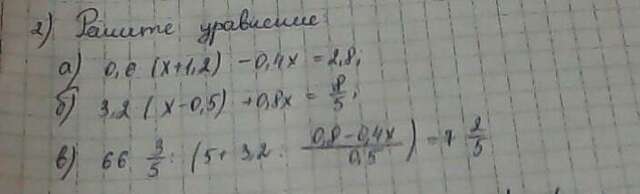 2) Решите уравнение:
а) 0,6 (x+1,2) - 0,4x = 2,8;
б) 3,2 (x-0,5) + 0,8x = 8/5;
в) 66 3/5 : (5+3,2 : (0,8-0,4x)/0,5) = 7 2/5